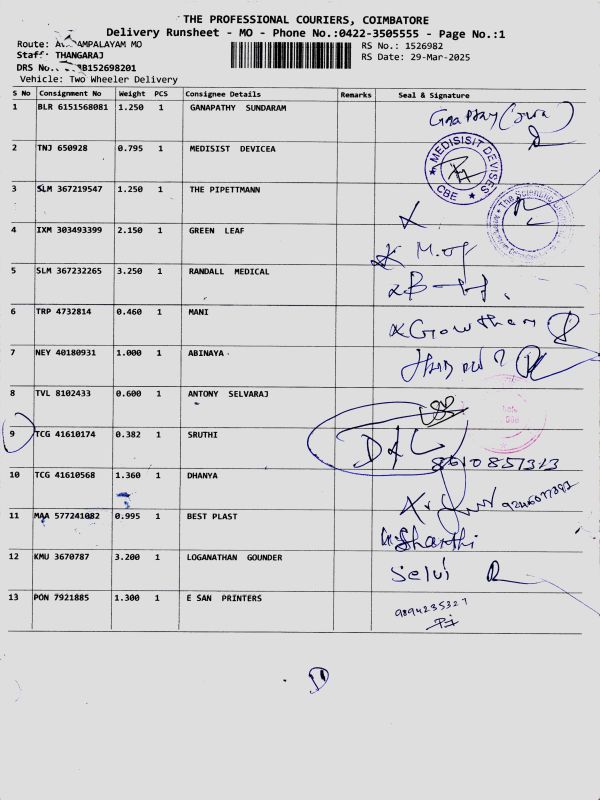 THE PROFESSIONAL COURIERS, COIMBATORE
Delivery Runsheet - MO - Phone No.:0422-3505555 - Page No.:1
Route: AMPALAYAM MO RS No.: 1526982
Staff: THANGARAJ RS Date: 29-Mar-2025
DRS No. B152698201
Vehicle: Two Wheeler Delivery
S No Consignment No Weight PCS Consignee Details Remarks Seal & Signature
1 BLR 6151568081 1.250 1 GANAPATHY SUNDARAM
2 TNJ 650928 0.795 1 MEDISIST DEVICEA
MEDISISIT DEVISES
CBE
3 SLM 367219547 1.250 1 THE PIPETTMANN
The Scientific
4 IXM 303493399 2.150 1 GREEN LEAF
5 SLM 367232265 3.250 1 RANDALL MEDICAL
6 TRP 4732814 0.460 1 MANI
Gowtham
7 NEY 40180931 1.000 1 ABINAYA
8 TVL 8102433 0.600 1 ANTONY SELVARAJ
9 TCG 41610174 0.382 1 SRUTHI
8610857313
10 TCG 41610568 1.360 1 DHANYA
11 MAA 577241082 0.995 1 BEST PLAST
Sharthi
12 KMU 3670787 3.200 1 LOGANATHAN GOUNDER
Selvi
13 PON 7921885 1.300 1 E SAN PRINTERS
9894235327